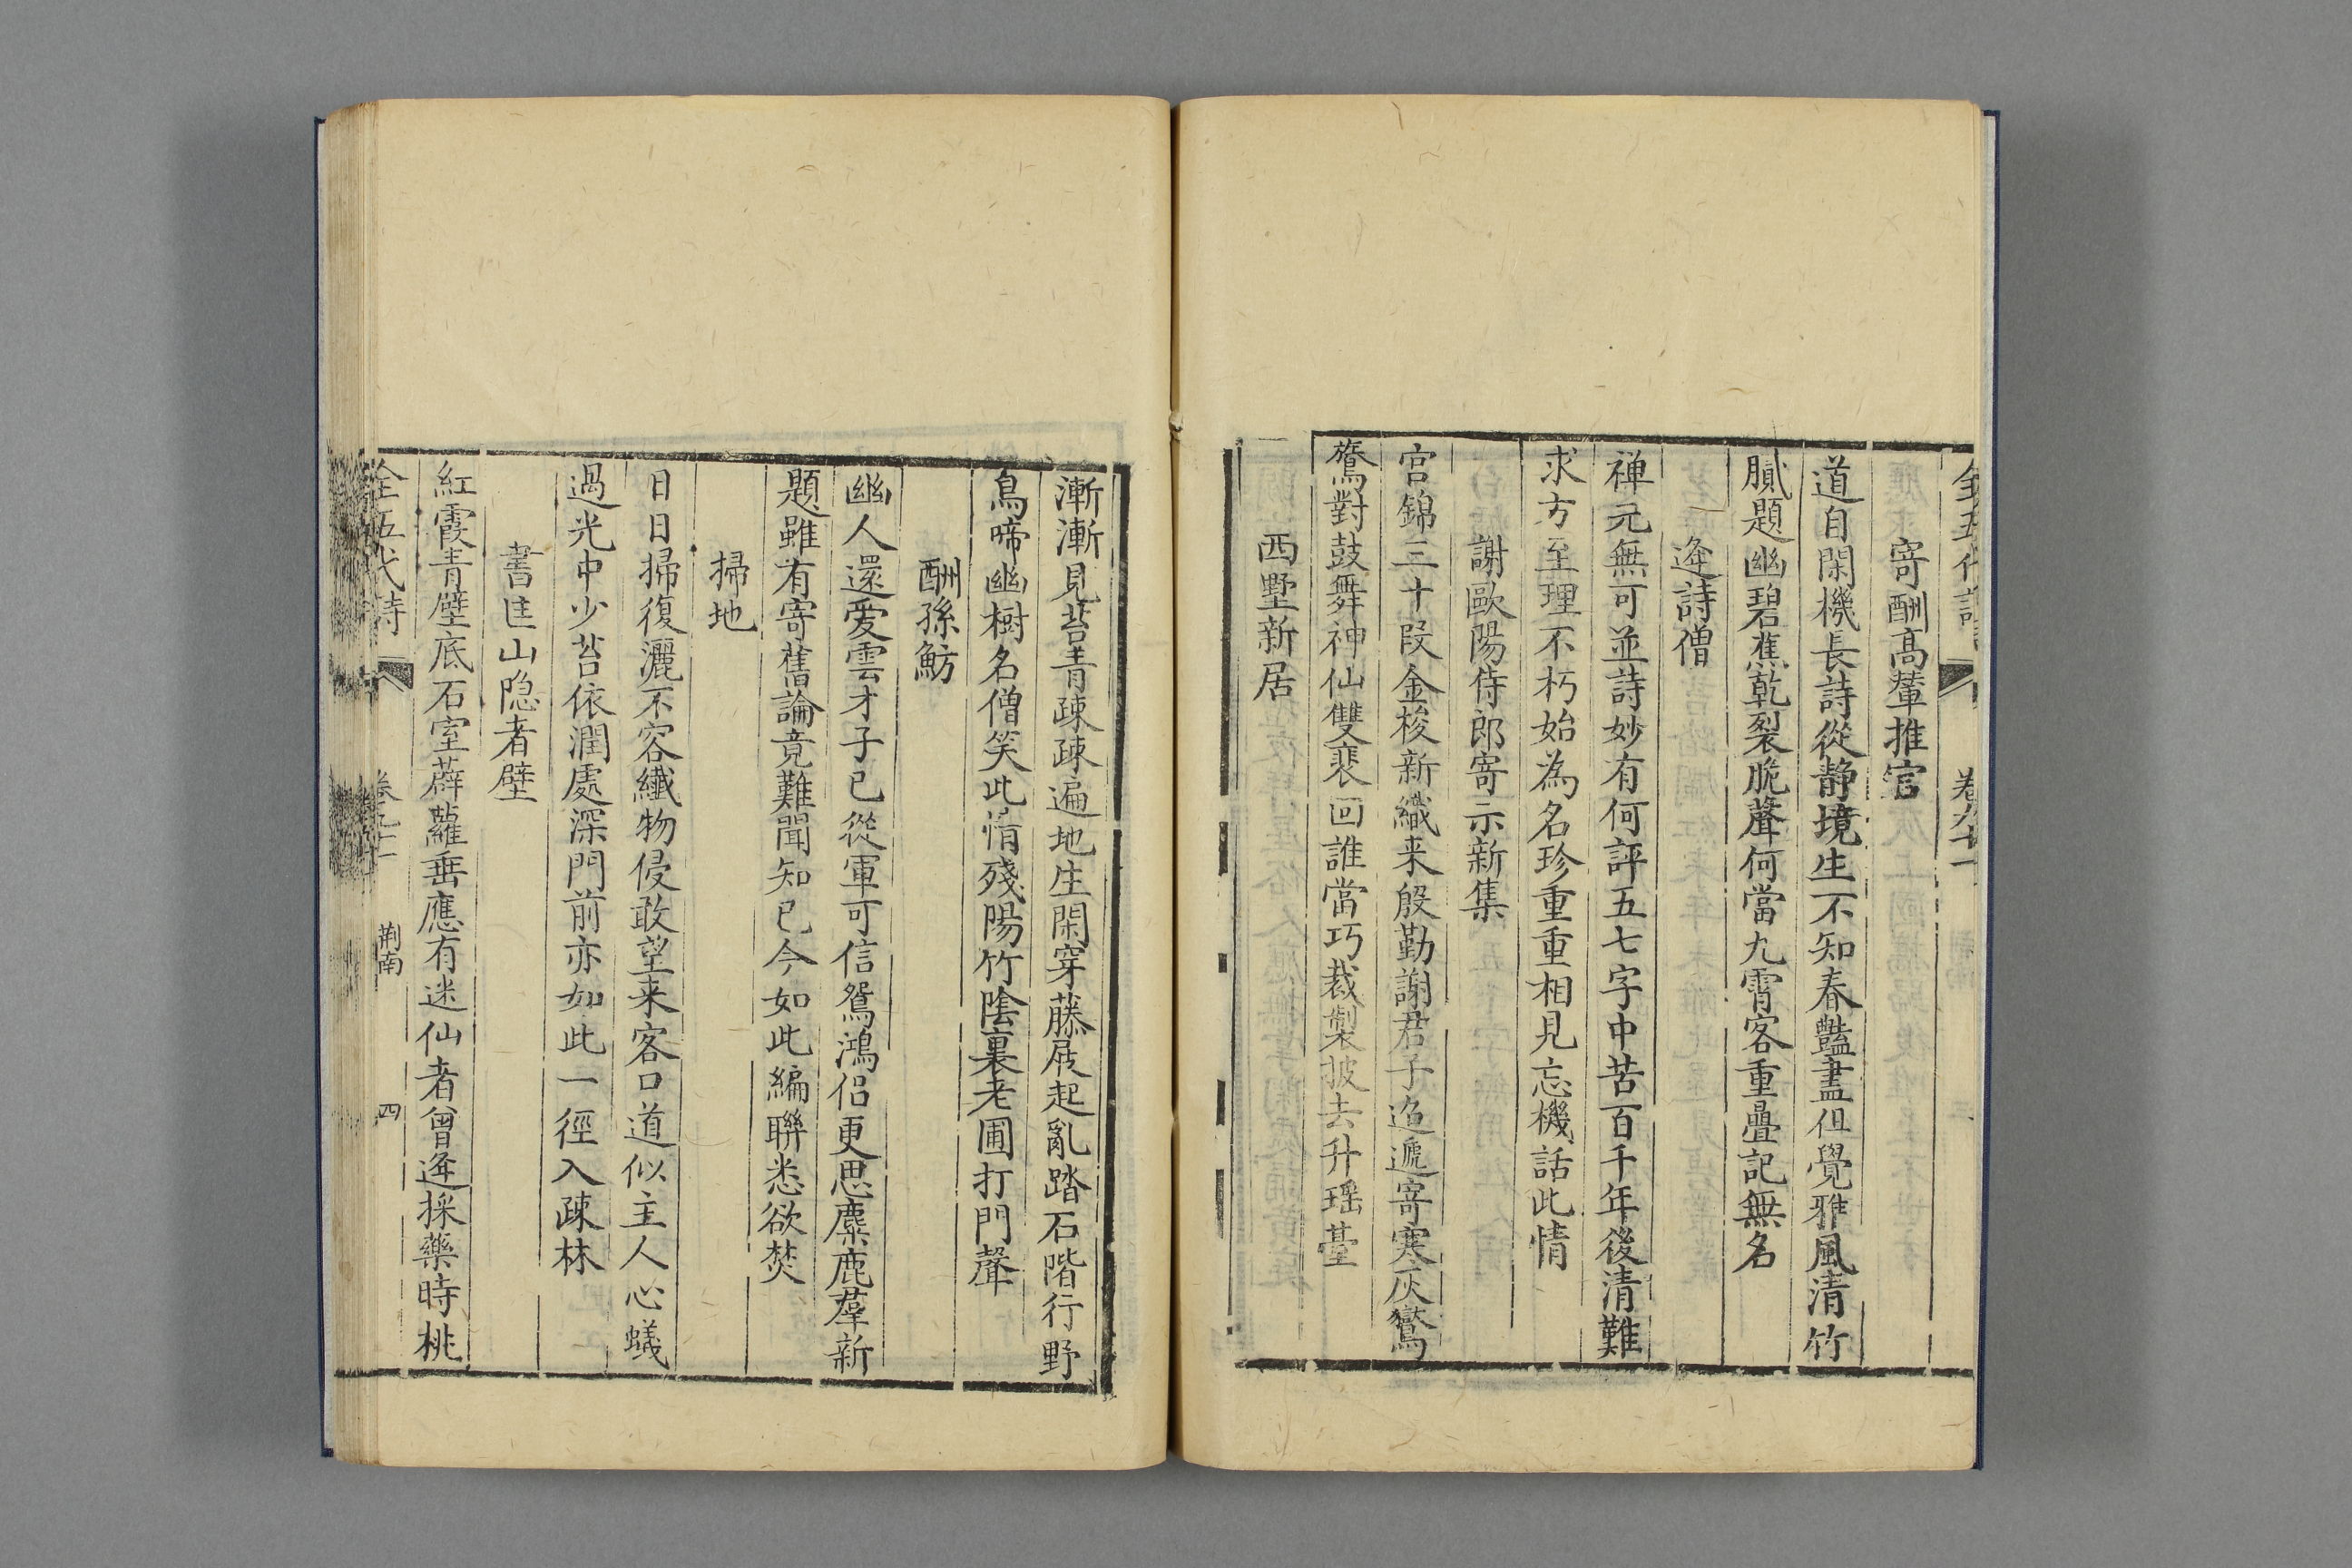 全五代詩 卷九十一
寄酬高輦推官
道自閑機長詩從靜境生不知春豔盡但覺雅風清竹
膩題幽碧蕉乾裂脆聲何當九霄客重疊記無名
逢詩僧
禅元無可並詩妙有何評五七字中苦百千年後清難
求方至理不朽始為名珍重重相見忘機話此情
謝歐陽侍郎寄示新集
宮錦三十段金梭新織来殷勤謝君子迢遞寄寒灰鸞
鶱對鼓舞神仙雙裴回誰當巧裁製披去升瑶臺
西墅新居
漸漸見苔青疎疎遍地生閑穿藤屐起亂踏石階行野
鳥啼幽樹名僧笑此情殘陽竹陰裏老圃打門聲
酬孫魴
幽人還爱雲才子已從軍可信鴛鴻侶更思麋鹿羣新
題雖有寄舊論竟難聞知已今如此編聯悉欲焚
掃地
日日掃復灑不容纖物侵敢望来客口道似主人心蟻
過光中少苔依潤處深門前亦如此一徑入疎林
書匡山隐者壁
紅霞青壁底石室薜蘿垂應有迷仙者曾逢採藥時桃
全五代詩 卷九十一 荆南 四